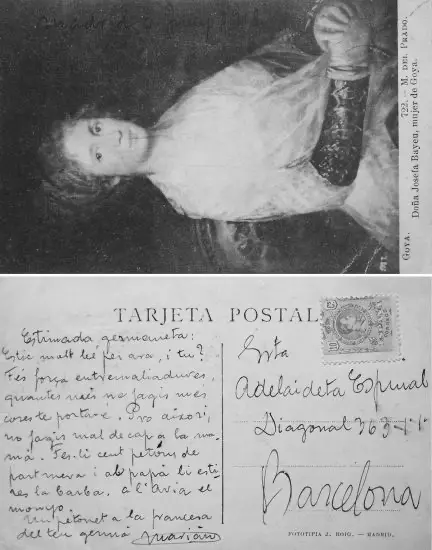 Madrid
GOYA. 722. — M. DEL PRADO.
Doña Josefa Bayeu, mujer de Goya.
TARJETA POSTAL
Estimada germaneta:
Estic molt bé per ara, i tu?
Fés força entremaliadures,
quantes més no fagis més
coses te porta-e. Pro aixori,
no fagis mal de cap a la ma-
má. Fes-li cent petons de
part meva i al papà li esti-
res la barba. a l'avia el
monyo.
Un petonet a la francesa
del teu germà Marian
Srta
Adelaideta Espinal
Diagonal 363
Barcelona
FOTOTIPIA J. ROIG. — MADRID.